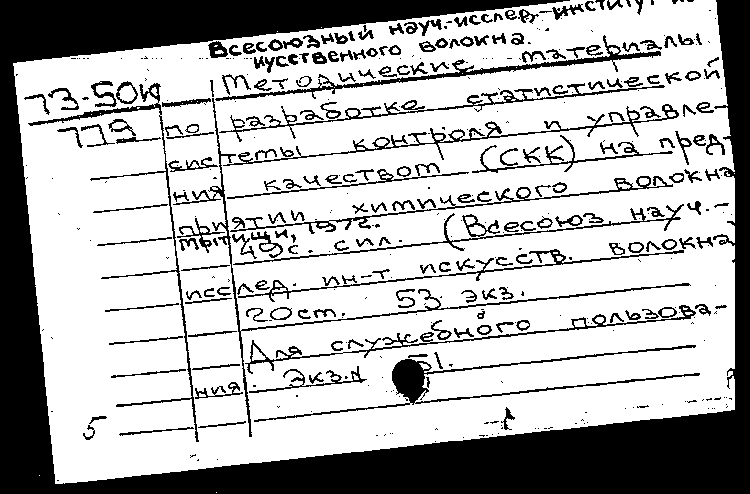 Всесоюзный науч.-исслед. институт ис
кусственного волокна.
73-50к Методические материалы
779 по разработке статистической
системы контроля и управле-
ния качеством (СКК) на пред-
приятии химического волокна
Мытищи, 1972.
49с. с ил. (Всесоюз. науч.-
исслед. ин-т искусств. волокна)
20 ст. 53 экз.
Для служебного пользова-
ния. Экз. N 51.
5